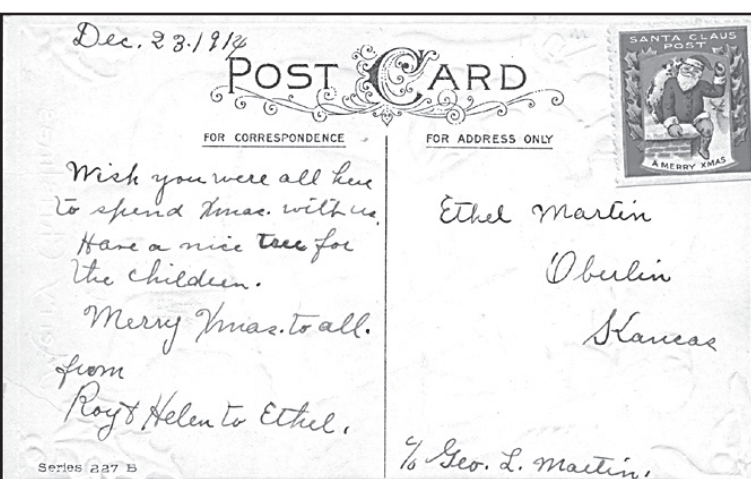 Dec. 23. 1914
POST CARD
SANTA CLAUS
POST
A MERRY XMAS
FOR CORRESPONDENCE
FOR ADDRESS ONLY
Wish you were all here
to spend Xmas. with us.
Have a nice tree for
the children.
Merry Xmas. to all.
from
Roy & Helen to Ethel.
Series 227 B
Ethel Martin
Oberlin
Kansas
c/o Geo. L. Martin.